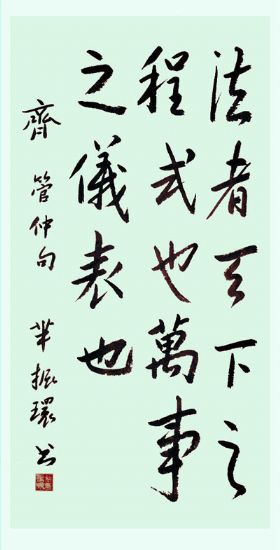 法者天下之
程式也萬事
之儀表也
齊 管仲句 芈振環书